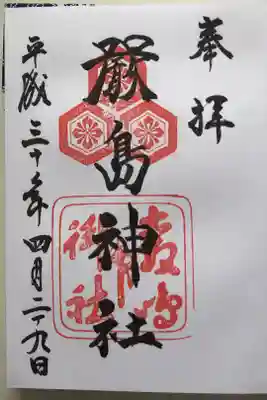 奉拝
厳島神社
平成三十年四月二十九日